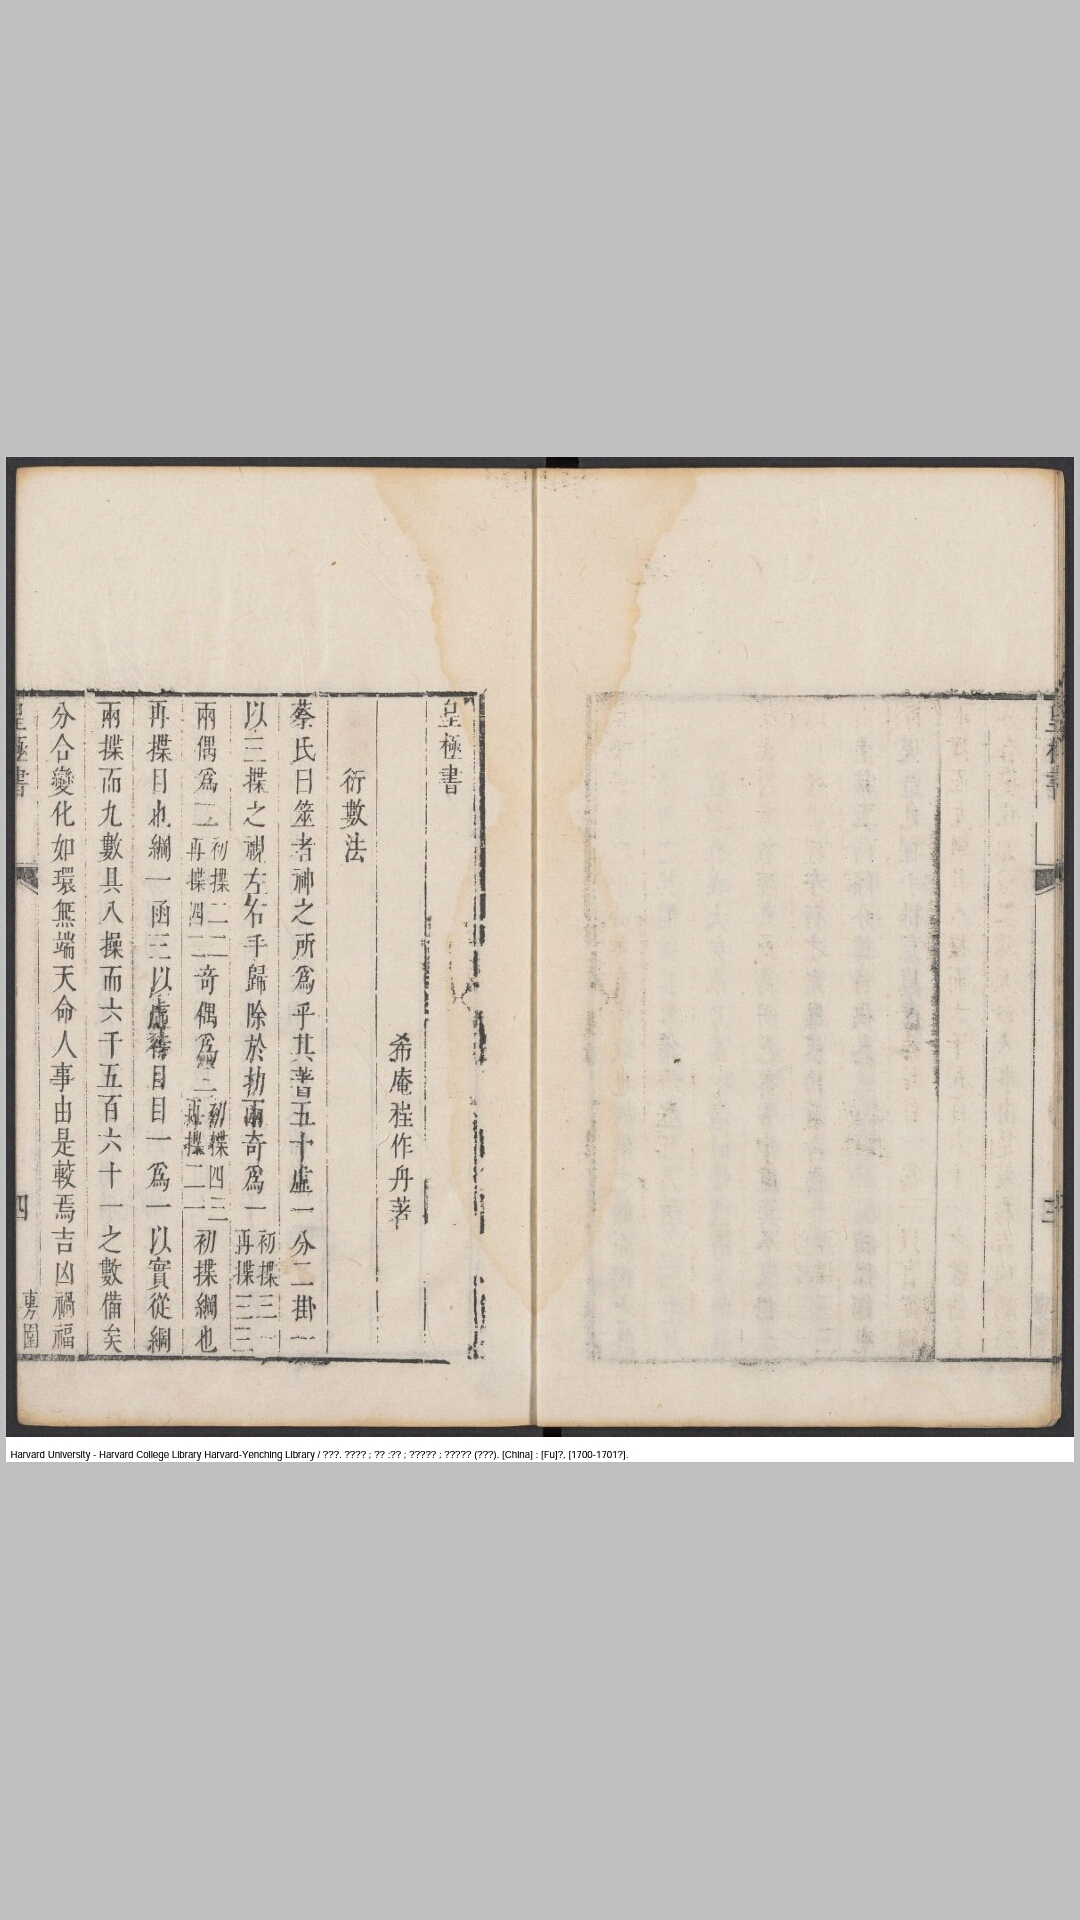 皇極書
希庵程作舟著
衍數法
蔡氏曰筮者神之所爲乎其蓍五十虛一分二掛一
以三揲之視左右手歸除於扐兩奇爲一初揲三一再揲三三
兩偶爲二初揲二二再揲四二奇偶爲三初揲四三再揲二一初揲綱也
再揲目也綱一函三以虛待目目一爲一以實從綱
兩揲而九數具八揲而六千五百六十一之數備矣
分合變化如環無端天命人事由是較焉吉凶禍福
皇極書
四
Harvard University - Harvard College Library Harvard-Yenching Library / ???. ???? ; ?? :?? ; ????? ; ????? (???). [China] : [Fu]?, [1700-1701?].